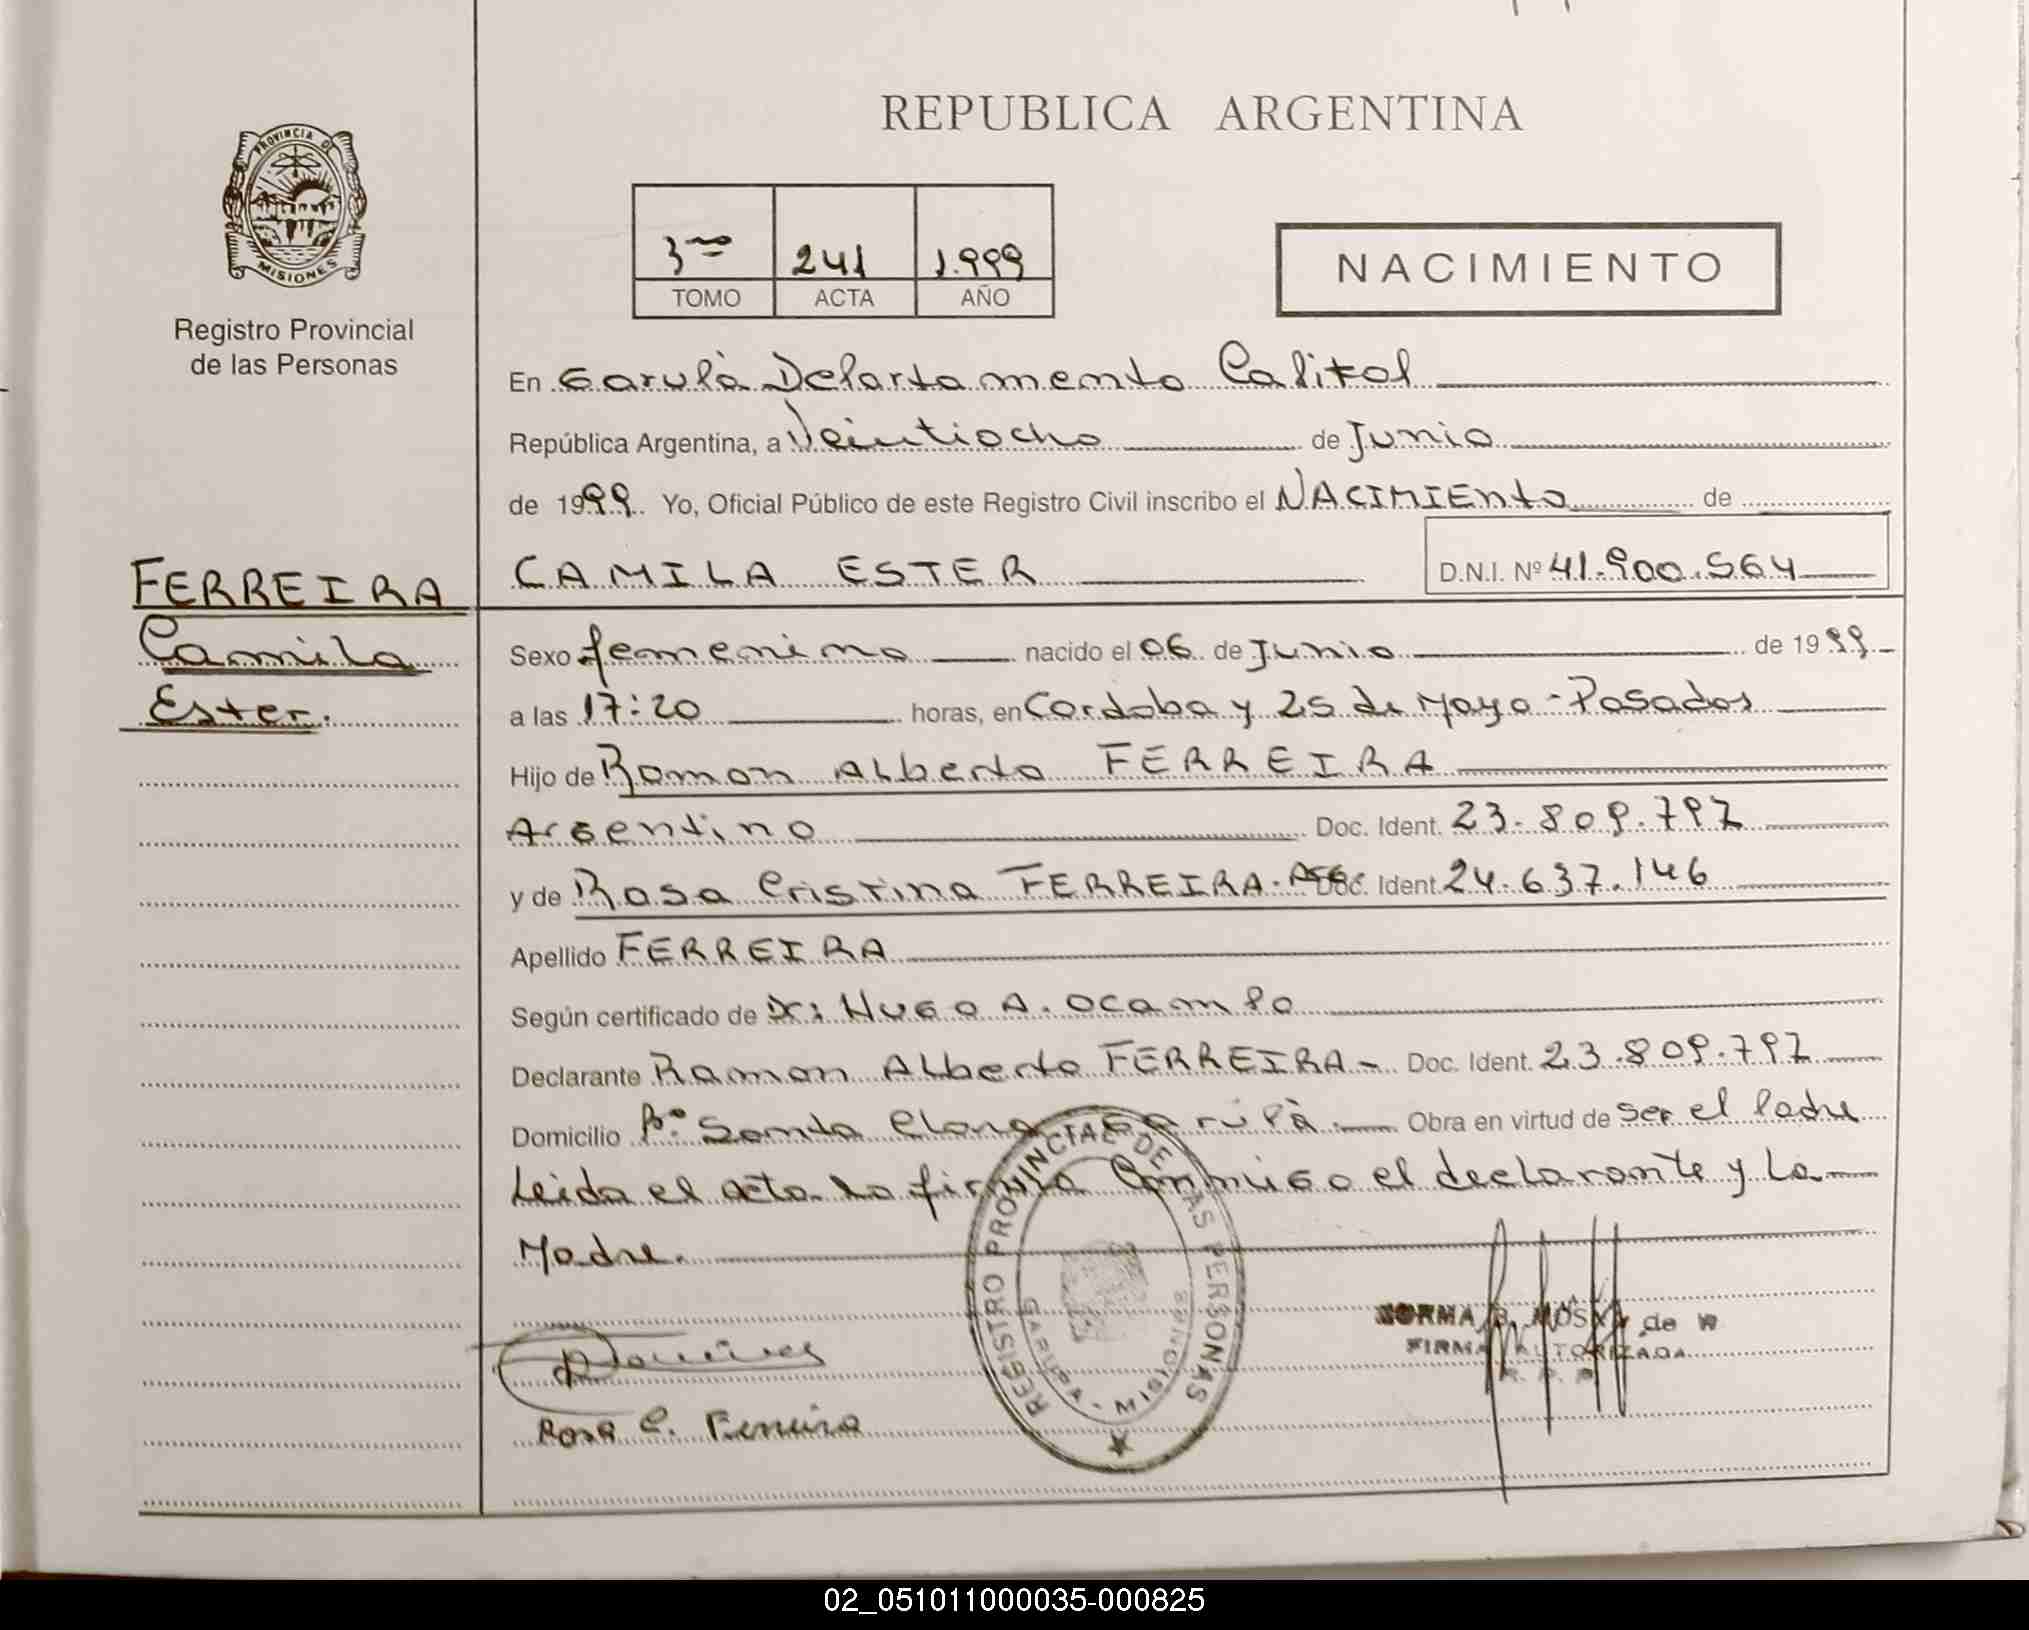 REPUBLICA ARGENTINA
PROVINCIA DE
MISIONES
Registro Provincial
de las Personas
3ro 241 1.999
TOMO ACTA AÑO
NACIMIENTO
En Garupà Departamento Capital
República Argentina, a Veintiocho de Junio
de 1999. Yo, Oficial Público de este Registro Civil inscribo el NACIMIENto de
CAMILA ESTER D.N.I. Nº 41.900.564
FERREIRA
Camila
Ester.
Sexo femenino nacido el 06 de Junio de 1999
a las 17:20 horas, en Cordoba y 25 de Mayo - Posadas
Hijo de Ramon Alberto FERREIRA
Argentino Doc. Ident. 23.809.797
y de Rosa Cristina FERREIRA. Arg. Doc. Ident. 24.637.146
Apellido FERREIRA
Según certificado de Dr: Hugo A. Ocampo
Declarante Ramon Alberto FERREIRA - Doc. Ident. 23.809.797
Domicilio Bº Santa Clara Garupà. Obra en virtud de ser el Padre
Leida el acta la firma Conmigo el declarante y La
Madre.
REGISTRO PROVINCIAL DE LAS PERSONAS
GARUPA - MISIONES
de W
FIRMA AUTORIZADA
Rosa C. Ferreira
02_051011000035-000825